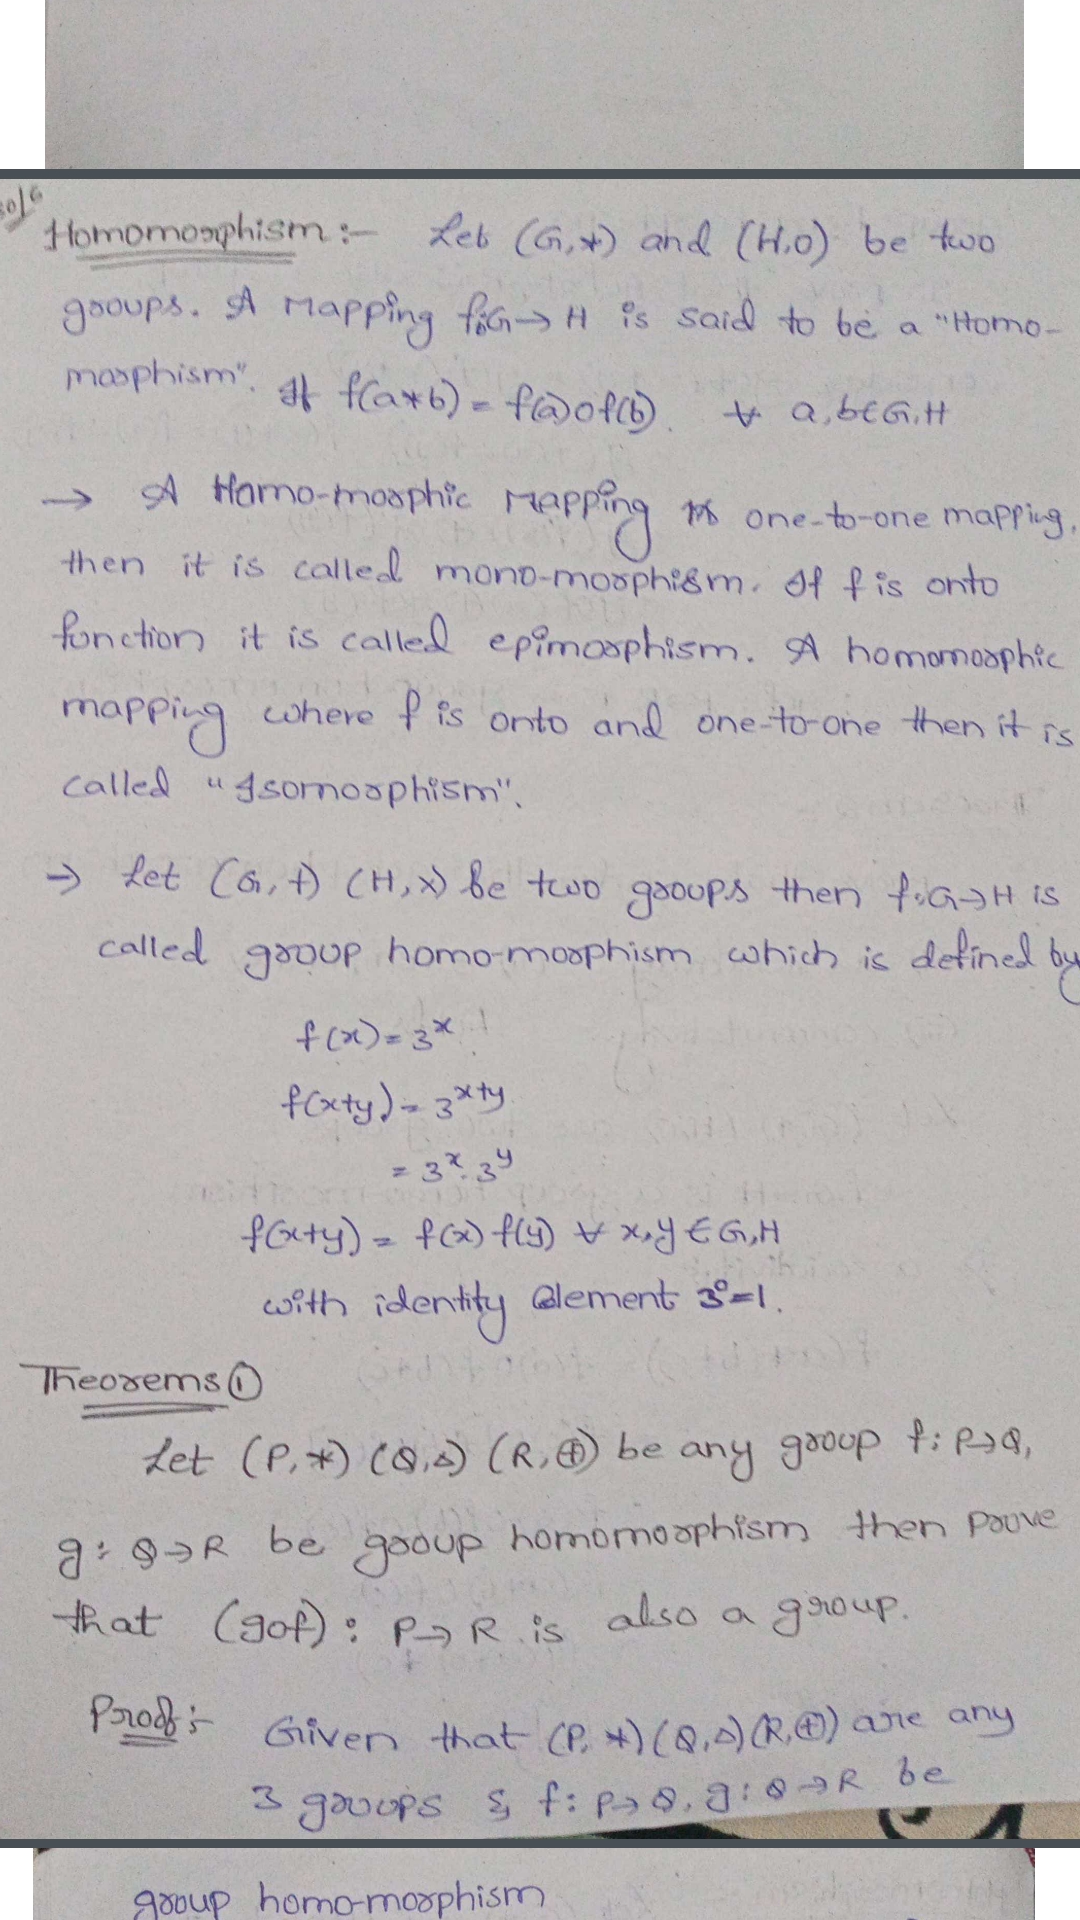 Homomorphism :- Let (G,*) and (H,o) be two
groups. A Mapping f:G→H is said to be a "Homo-
morphism". If f(a*b) = f(a)of(b). ∀ a,b∈G,H
→ A Homo-morphic Mapping is one-to-one mapping,
then it is called mono-morphism. If f is onto
function it is called epimorphism. A homomorphic
mapping where f is onto and one-to-one then it is
called "Isomorphism".
→ Let (G,+) (H,×) be two groups then f:G→H is
called group homo-morphism which is defined by
f(x) = 3^x
f(x+y) = 3^x+y
= 3^x. 3^y
f(x+y) = f(x) f(y) ∀ x,y ∈ G,H
with identity element 3°=1.
Theorems ①
Let (P,*) (Q,∆) (R,⊕) be any group f: P→Q,
g: Q→R be group homomorphism then prove
that (gof): P→R is also a group.
Proof :- Given that (P,*) (Q,∆) (R,⊕) are any
3 groups & f: P→Q, g: Q→R be
group homo-morphism